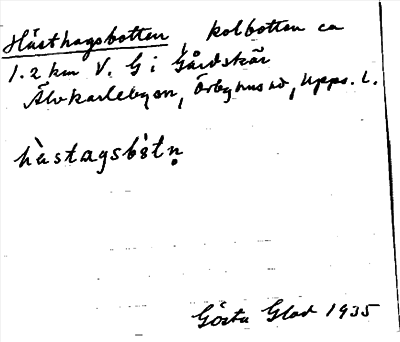 Hästhagsbotten, kolbotten ca
1.2 km V. G i Gårdskär
Älvkarlebyson, Örbyhus hd, Upps. l.
hàstagsbòtn̥
Gösta Glad 1935